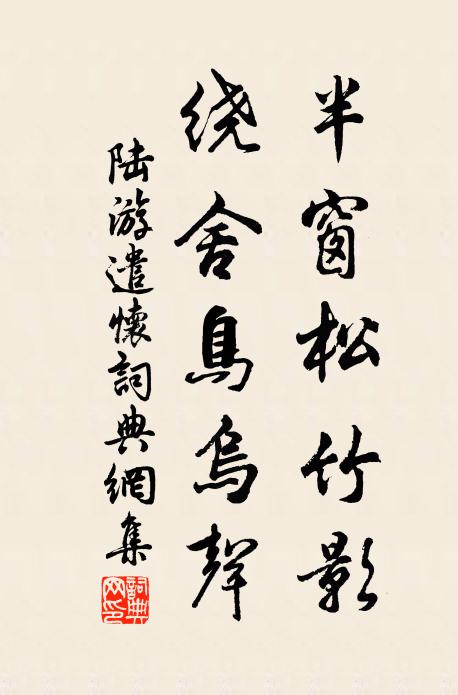 半窗松竹影
绕舍鳥烏聲
陆游遣懷詞典網集
詞典
网印